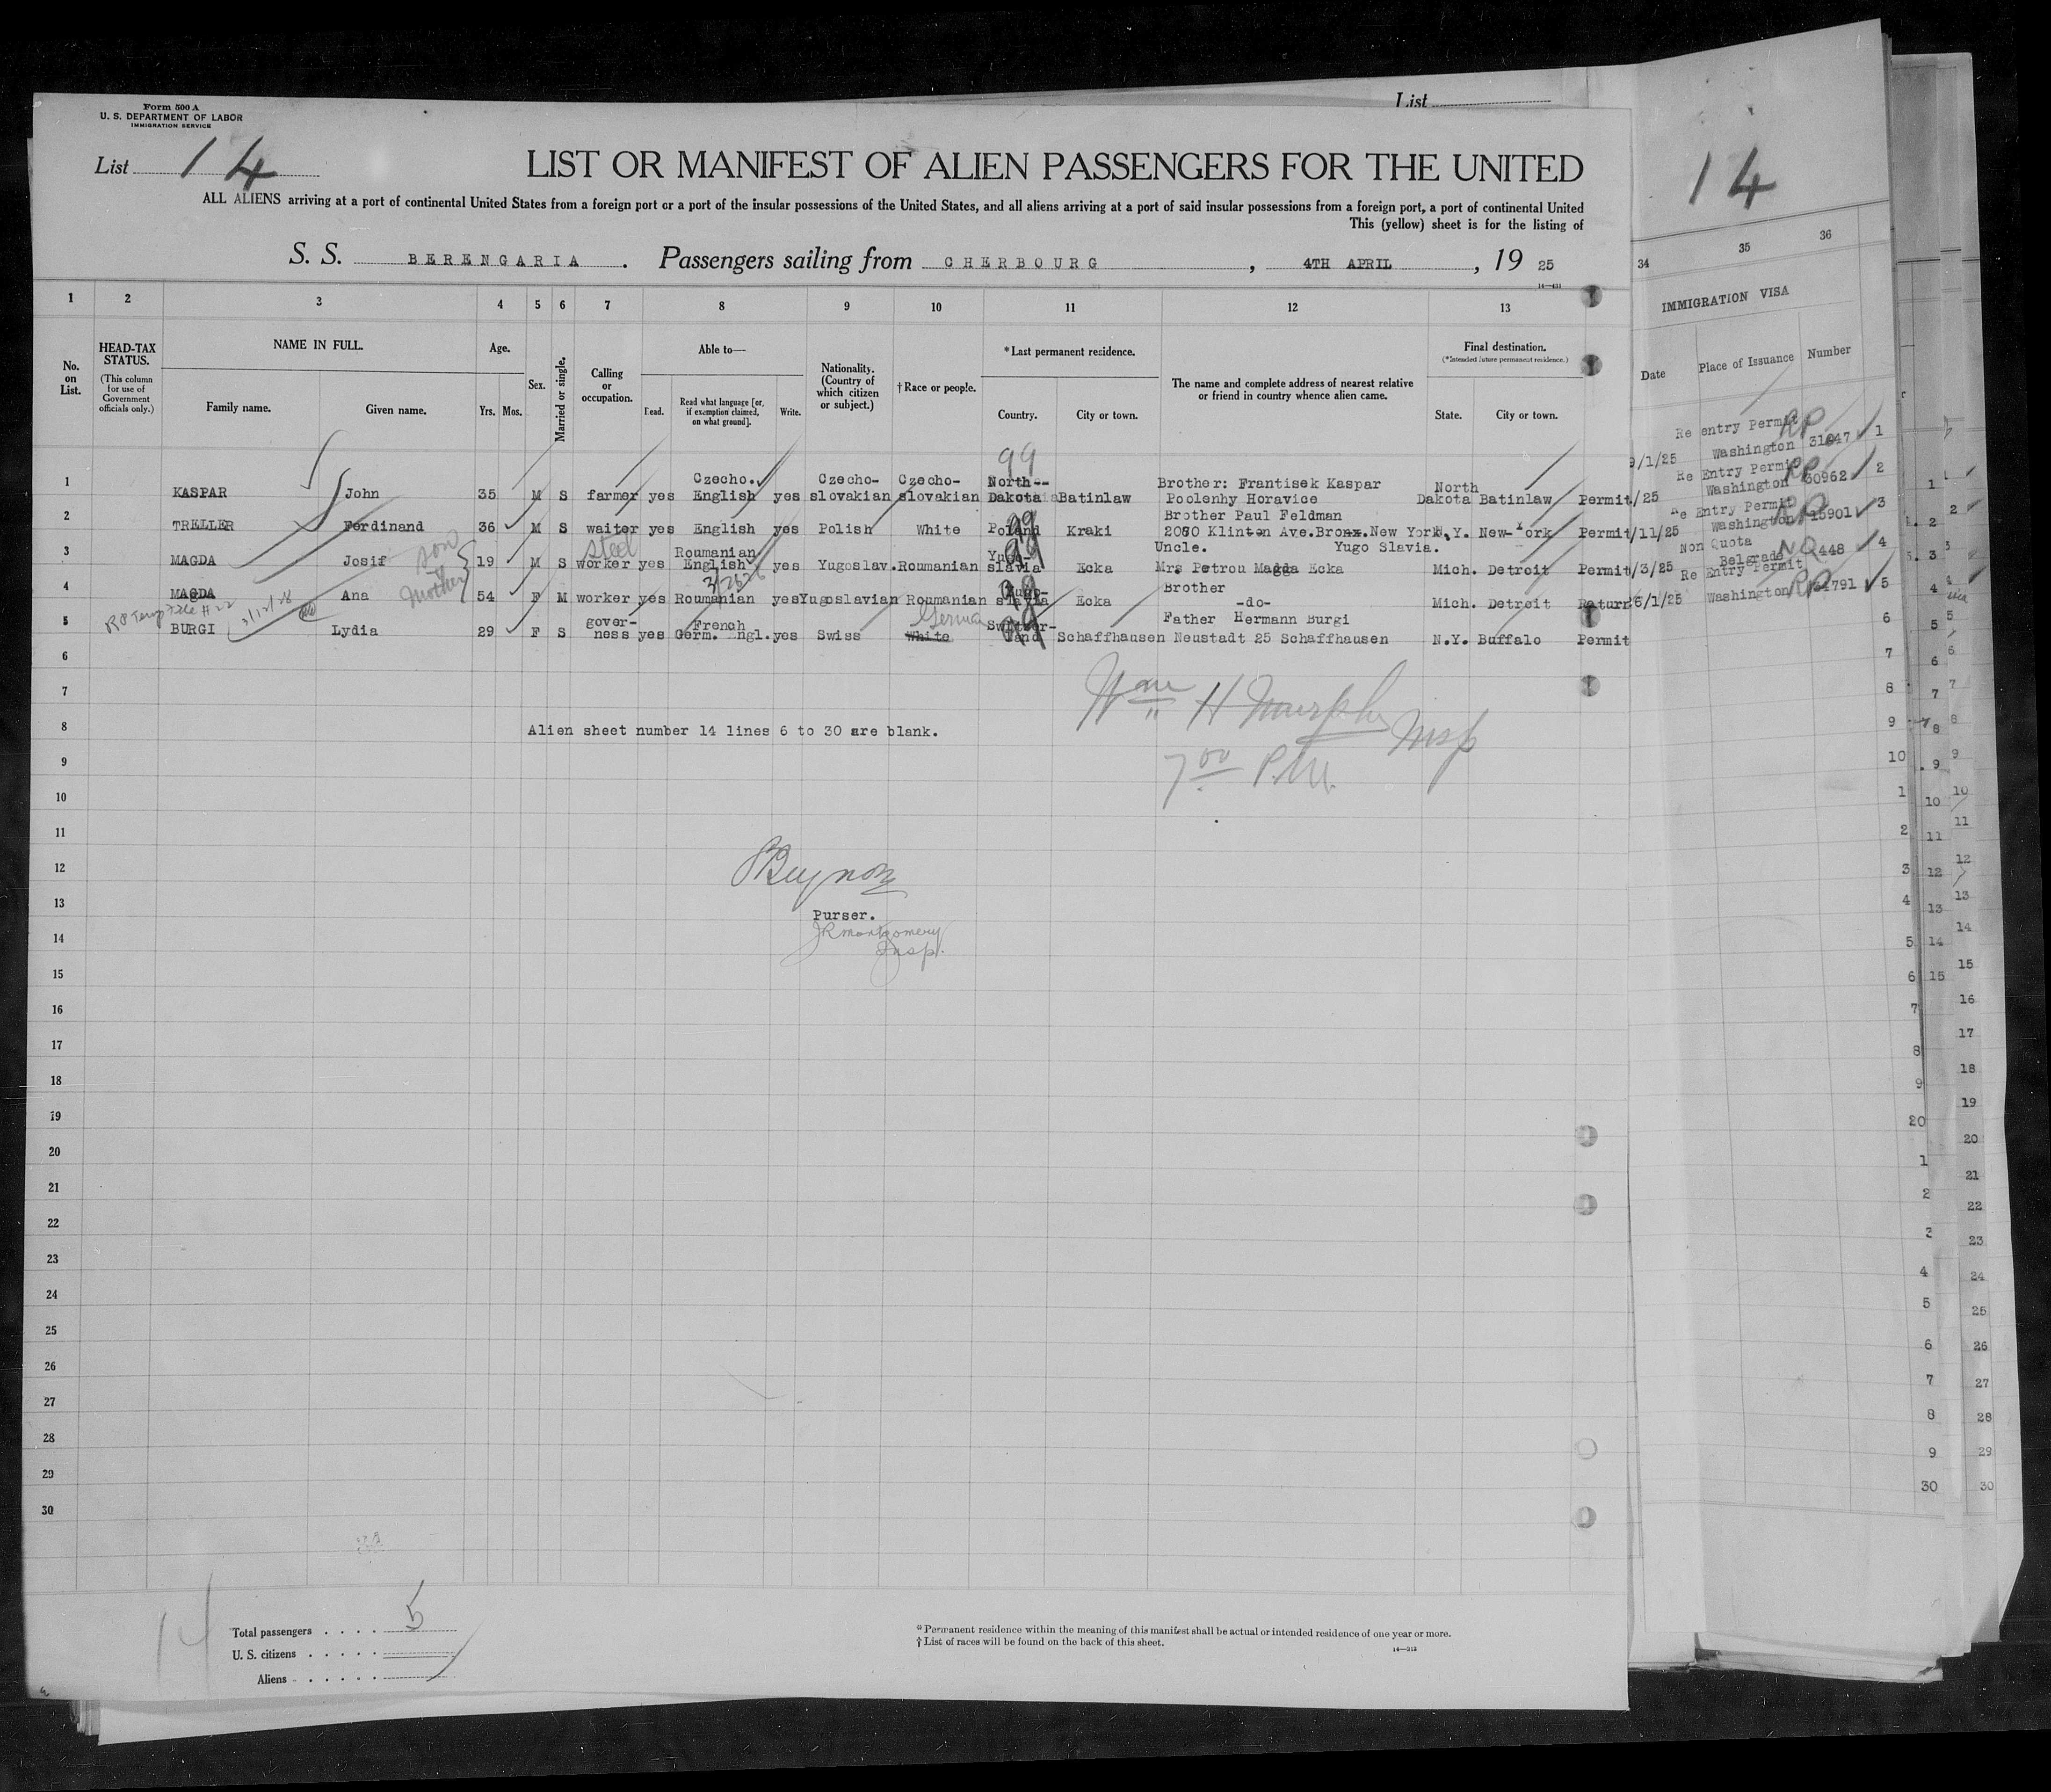 Form 500 A
U. S. DEPARTMENT OF LABOR
IMMIGRATION SERVICE
List 14
LIST OR MANIFEST OF ALIEN PASSENGERS FOR THE UNITED
ALL ALIENS arriving at a port of continental United States from a foreign port or a port of the insular possessions of the United States, and all aliens arriving at a port of said insular possessions from a foreign port, a port of continental United
This (yellow) sheet is for the listing of
S. S. BERENGARIA. Passengers sailing from CHERBOURG, 4TH APRIL, 19 25
1 2 3 4 5 6 7 8 9 10 11 12 13
No. on List.
HEAD-TAX STATUS.
(This column for use of Government officials only.)
NAME IN FULL.
Family name. Given name.
Age.
Yrs. Mos.
Sex.
Married or single.
Calling or occupation.
Able to—
Read. Read what language [or, if exemption claimed, on what ground]. Write.
Nationality. (Country of which citizen or subject.)
†Race or people.
*Last permanent residence.
Country. City or town.
The name and complete address of nearest relative or friend in country whence alien came.
Final destination.
(*Intended future permanent residence.)
State. City or town.
99
1 KASPAR John 35 M S farmer yes Czecho. English yes Czecho-slovakian Czecho-slovakian North-Dakota Batinlaw Brother: Frantisek Kaspar Poolenhy Horavice North Dakota Batinlaw Permit
2 TRELLER Ferdinand 36 M S waiter yes English yes Polish White Poland Kraki Brother Paul Feldman 2080 Klinton Ave.Bronx.New York. N.Y. New-York Permit
3 MAGDA Josif son 19 M S steel worker yes Roumanian English yes Yugoslav. Roumanian Yugo-slavia Ecka Uncle. Yugo Slavia. Mrs Petrou Magda Ecka Mich. Detroit Permit
4 MAGDA Ana mother 54 F M worker yes Roumanian yes Yugoslavian Roumanian Yugo-slavia Ecka Brother -do- Mich. Detroit Return
5 BURGI Lydia 29 F S gover-ness yes French Germ. Engl. yes Swiss White German Switzer-land Schaffhausen Father Hermann Burgi Neustadt 25 Schaffhausen N.Y. Buffalo Permit
6
7
8
9
10
11
12
13
14
15
16
17
18
19
20
21
22
23
24
25
26
27
28
29
30
Wm H Murphy Insp
7 00 P.M.
Alien sheet number 14 lines 6 to 30 are blank.
Purser.
JRMontgomery
Insp.
Total passengers . . . . 5
U. S. citizens . . . . .
Aliens . . . . . .
14
* Permanent residence within the meaning of this manifest shall be actual or intended residence of one year or more.
† List of races will be found on the back of this sheet.
List
14
34 35 36
IMMIGRATION VISA
Date Place of Issuance Number
Re entry Permit RP
Washington 1
Re Entry Permit RP
Washington 30962 2
Re Entry Permit RP
Washington 15901 3
Non Quota NQ
Belgrade 448 4
Re Entry Permit RP
Washington 5